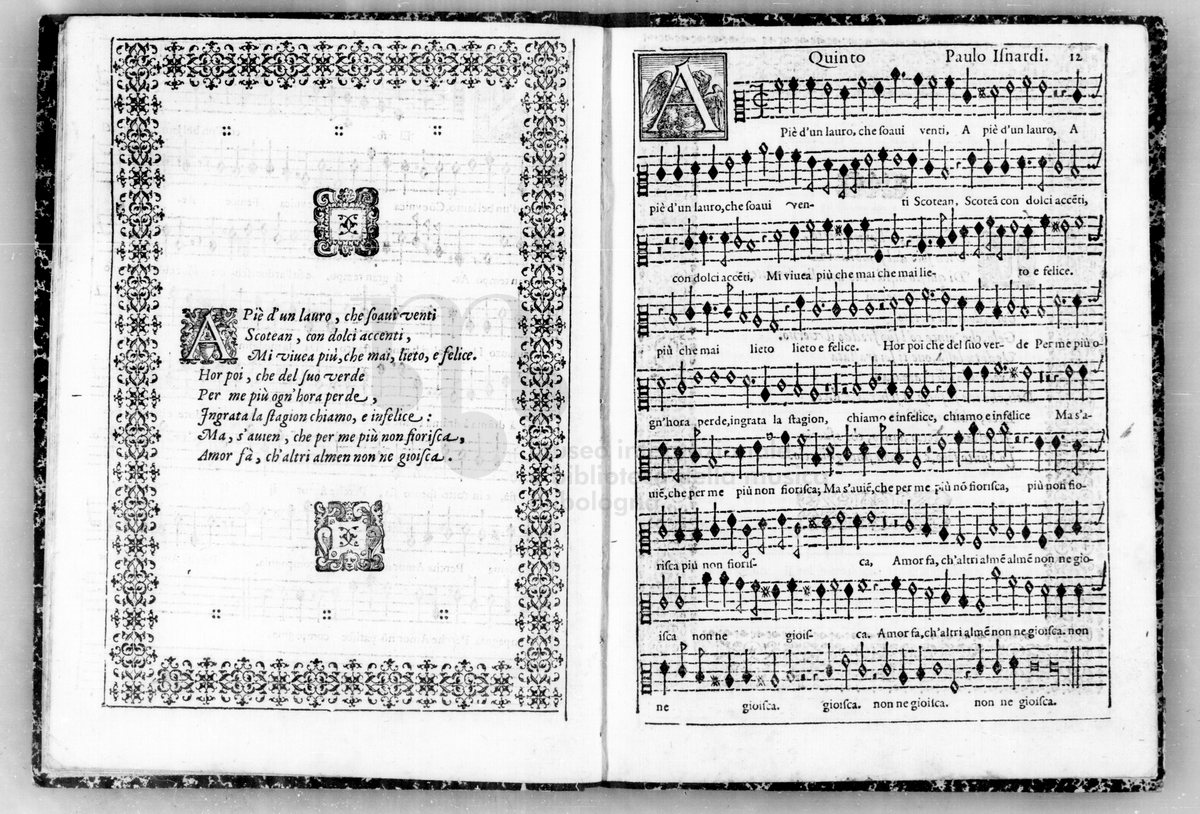 A Piè d'un lauro, che ſoaui venti
Scotean, con dolci accenti,
Mi viuea più, che mai, lieto, e felice.
Hor poi, che del ſuo verde
Per me più ogn'hora perde,
Ingrata la ſtagion chiamo, e infelice:
Ma, s'auien, che per me più non fioriſca,
Amor fà, ch'altri almen non ne gioiſca.
Quinto Paulo Iſnardi. 12
A Piè d'un lauro, che ſoaui venti, A piè d'un lauro, A
piè d'un lauro, che ſoaui ven- ti Scotean, Scoteã con dolci accẽti,
con dolci accẽti, Mi viuea più che mai che mai lie- to e felice.
più che mai lieto lieto e felice. Hor poi che del ſuo ver- de Per me più o-
gn'hora perde, ingrata la ſtagion, chiamo e infelice, chiamo e infelice Ma s'a-
uiẽ, che per me più non fioriſca; Ma s'auiẽ, che per me più nõ fioriſca, più non fio-
riſca più non fioriſ- ca, Amor fa, ch'altri almẽ almẽ non ne gio-
iſca non ne gioiſ- ca. Amor fa, ch'altri almẽ non ne gioiſca. non
ne gioiſca. gioiſca. non ne gioiſca. non ne gioiſca.